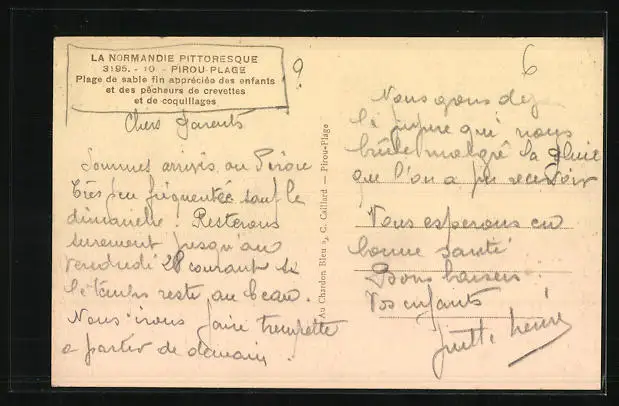 LA NORMANDIE PITTORESQUE
3195. - 10 - PIROU-PLAGE
Plage de sable fin appréciée des enfants
et des pêcheurs de crevettes
et de coquillages
Chers Parents
Sommes arrivés au Pirou
très peu fréquentée sauf le
dimanche. Resterons
surement jusqu'au
vendredi 28 courant si
le temps reste au beau.
Nous irons faire trempette
a partir de demain.
Au Chardon Bleu, C. Caillard — Pirou-Plage
6
Nous avons
la figure qui nous
brule malgré la pluie
que l'on a pu recevoir
Vous esperons en
bonne santé
Bons baisers
Vos enfants
Henri